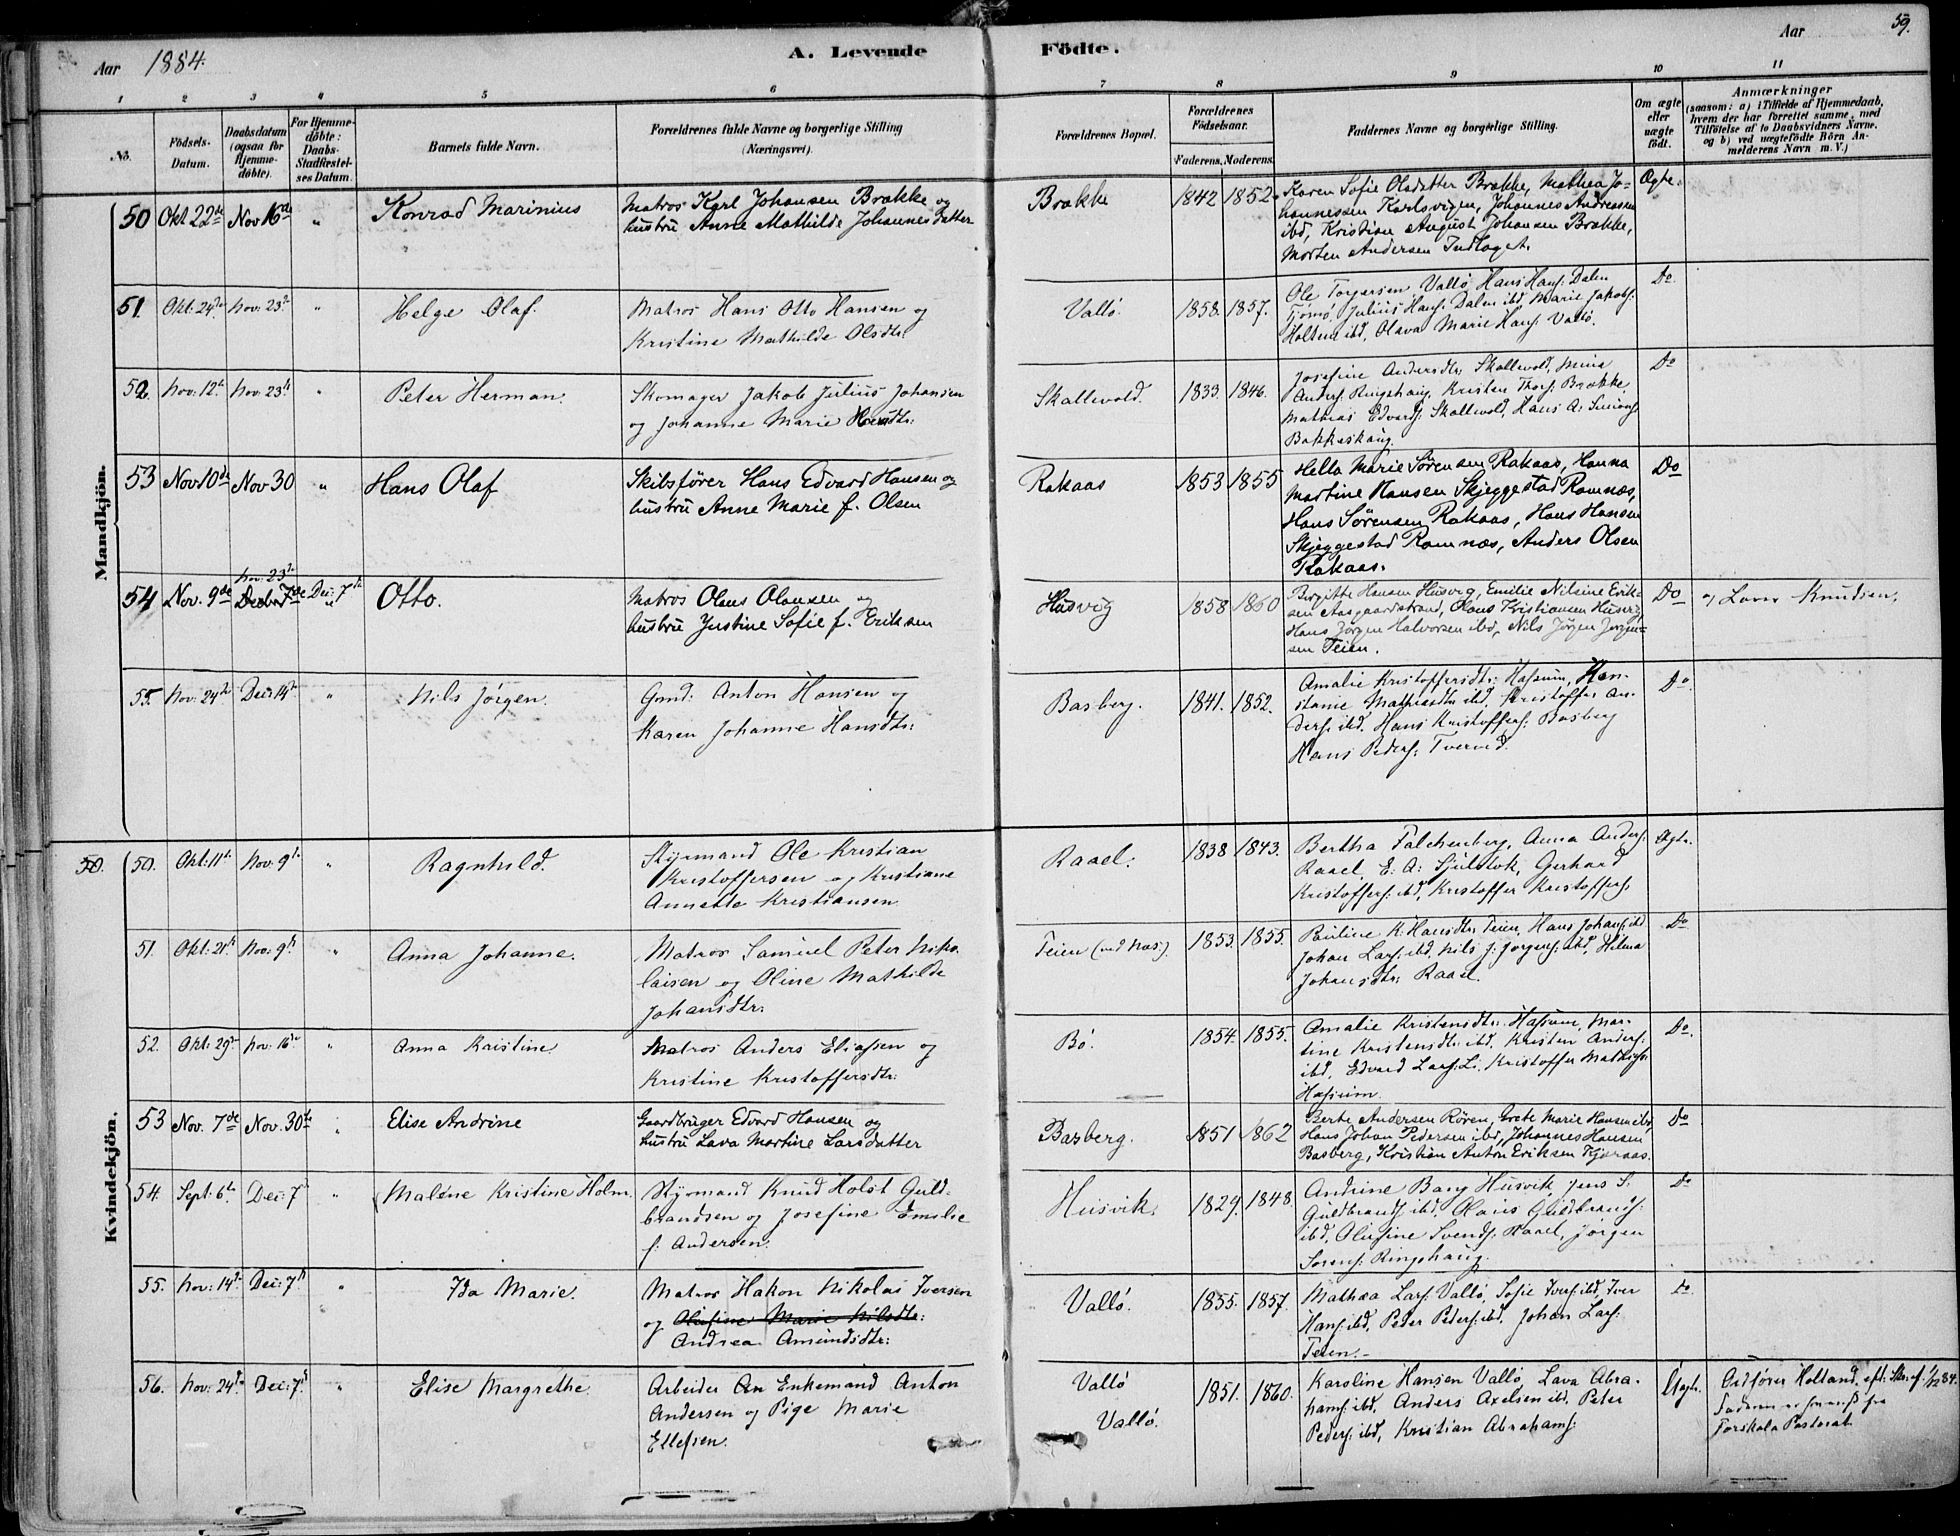 Aar 1884.
A. Levende Födte.
Aar
59.
1 2 3 4 5 6 7 8 9 10 11
No.
Födsels-Datum.
Daabsdatum (ogsaa for Hjemme-döbte).
For Hjemme-döbte: Daabs-Stadfæstel-ses Datum.
Barnets fulde Navn.
Forældrenes fulde Navne og borgerlige Stilling (Næringsvei).
Forældrenes Bopæl.
Forældrenes Födselsaar.
Faderens. Moderens.
Faddernes Navne og borgerlige Stilling.
Om ægte eller uægte født.
Anmærkninger
(saasom: a) i Tilfælde af Hjemmedaab,
hvem der har forrettet samme, med
Tilföielse af to Daabsvidners Navne.
og b) ved uægtefödte Börn An-
melderens Navn m. V.)
Mandkjön.
50 Okt 22de Nov 16de " Konrad Marinius
Matros Karl Johansen Brække og
hustru Anne Mathilde Johannesdatter
Brække 1842 1852
Karen Sofie Olsdatter Brække, Mathea Jo-
hannessen Karlsvigen, Johannes Andreasen
ibd, Kristian August Johansen Brække,
Morten Andersen Indlaget.
Ægte.
51. Okt: 24de Nov: 23de " Helge Olaf.
Matros Hans Otto Hansen og
Kristine Mathilde Olsdtr:
Vallö. 1858. 1857.
Ole Torgersen Vallö, Hans Hans: Dalen
Tjömö, Julius Hans: Dalen ibd, Marie Jakobs:
Holtene ibd, Olava Marie Hans: Vallö.
Do
52. Nov: 12te Nov: 23de " Peter Herman.
Skomager Jakob Julius Johansen
og Johanne Marie
Skallevold. 1833. 1846.
Josefine Andersdtr: Skallevold, Mina
Anders: Ringshaug, Kristen Thors: Brække,
Mathias Edvards: Skallevold, Hans A: Simons:
Bakkeskaug.
Do
53 Nov 10de Nov 30 " Hans Olaf
Skibsförer Hans Edvard Hansen og
hustru Anne Marie f. Olsen
Rakaas 1853 1855
Hella Marie Sörensen Rakaas, Hanna
Martine Hansen Skjeggestad Ramnæs,
Hans Sörensen Rakaas, Hans Hansen
Skjeggestad Ramnæs, Anders Olsen
Rakaas.
Do
54 Nov. 9de Nov: 23de Decbr 7de Dec: 7de Otto.
Matros Olaus Olausen og
hustru Justine Sofie f. Eriksen
Husvig 1858 1860
Birgitte Hansen Husvig, Emilie Nilsine Erik-
sen Aasgaardstrand, Olaus Kristiansen Husvig,
Hans Jörgen Halvorsen ibd, Nils Jörgen Jörgen-
sen Teien.
Do
Knudsen.
55. Nov: 24de Dec: 14de " Nils Jörgen.
Gmd: Anton Hansen og
Karen Johanne Hansdtr:
Basberg. 1841. 1852.
Amalie Kristoffersdtr: Hassum, Kon-
stanse Mathiasdtr: ibd, Kristoffer An-
ders: ibd, Hans Kristoffers: Basberg
Hans Peders: Tverved.
Do
Kvindekjön.
50. 50. Okt: 11te Nov: 9de " Ragnhild.
Styrmand Ole Kristian
Kristoffersen og Kristiane
Annette Kristiansen
Raael. 1838 1843.
Bertha Falchenberg, Anna Anders:
Raael, E. A: Sjulstok, Gerhard
Kristoffers: ibd, Kristoffer Kristoffers:
Ægte.
51. Okt: 21de Nov: 9de " Anna Johanne.
Matros Samuel Peter Niko-
laisen og Oline Mathilde
Johansdtr:
Teien (ved Næs). 1853. 1855.
Pauline K. Hansdtr: Teien, Hans Johans: ibd
Johan Lars: ibd, Nils J: Jörgens: ibd, Helma
Johansdtr: Raael.
Do
52. Okt: 29de Nov: 16de " Anna Kristine
Matros Anders Eliassen og
Kristine Kristoffersdtr:
Bö. 1854. 1855.
Amalie Kristensdtr: Hassum, Mar-
tine Kristensdtr: ibd, Kristen Anders:
ibd, Edvard Lars: Li, Kristoffer Mathias:
Hassum.
Do
53 Nov. 7de Nov. 30te " Elise Andrine
Gaardbruger Edvard Hansen og
hustru Lava Martine Larsdatter
Basberg. 1851 1862
Berte Andersen Rören, Grete Marie Hansen ibd,
Hans Johan Pedersen ibd, Johannes Hansen
Basberg, Kristian Anton Eriksen Kjæraas.
Do
54. Sept: 6te Dec: 7de " Malene Kristine Holm.
Styrmand Knud Holst Guld-
brandsen og Josefine Emilie
f. Andersen.
Husvik. 1829. 1848.
Andrine Bang Husvik, Jens S.
Guldbrands: ibd, Olaus Guldbrands:
ibd, Olufine Svends: Raael, Jörgen
Sörens: Ringshaug.
Do
55. Nov: 14de Dec: 7de " Ida Marie.
Matros Hakon Nikolai Iversen
og Olufine Marie Nilsdtr:
Andrea Amundsdtr:
Vallö. 1855. 1857.
Mathea Lars: Vallö, Sofie Ivers: ibd, Iver
Hans: ibd, Peder Peders: ibd, Johan Lars:
Teien.
Do
56. Nov: 24de Dec: 7de " Elise Margrethe
Arbeider An Enkemand Anton
Andersen og Pige Marie
Ellefsen.
Vallö
Vallö. 1851. 1860.
Karoline Hansen Vallö, Lava Abra-
hams: ibd, Anders Axelsen ibd, Peter
Peders: ibd, Kristian Abrahams:
Uægte.
Ordförer Holtand, eft: Skr: af 1/12 84.
Faderen er
Torskola Pastorat.